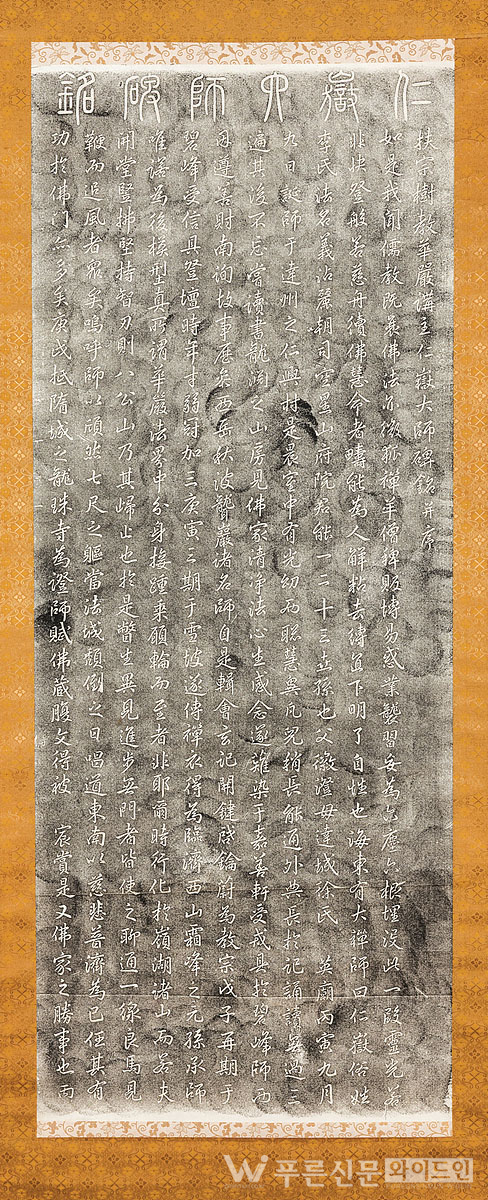 仁嶽大師碑銘
扶宗樹教華嚴講主仁嶽大師碑銘幷序
如是我聞儒教旣衰佛法亦微狐禪羊僧稗販博易惑業習妄爲六堙沒此一段靈光若
非快登般若慈舟續佛慧命者疇能爲人解粘去縛直下明了自性也海東有大禪師曰仁嶽俗姓
李氏法名義沾麗朝司空星山府院君能一二十三世孫也父徽澄母達城徐氏 英廟丙寅九月
九日誕師于達州之仁興村是晨室中有光幼而聰慧異凡兒稍長能通外典長於記誦讀無過三
遍其後不忘嘗讀書龍淵之山房見佛家清淨法心生感念遂薙染于嘉善軒受戒具於碧峰師西
遵善財南詢故事歷參西岳秋波聾巖諸名師自是輯會玄記開鍵啓鑰蔚爲教宗戊子再期于
碧峰受信具登壇時年才弱冠加三庚寅三期于雪坡遂傳禪衣得爲臨濟西山霜峰之元孫承師
唯諾爲後模型真所謂華嚴法界中分身接踵乘願輪而至者非耶爾時行化於嶺湖諸山而若夫
開堂竪拂堅持智刃則八公山乃其歸止也於是瞥生異見進步無門者皆使之聊通一線良馬見
鞭而追風者衆矣嗚呼師以頎然七尺之軀當法城頹倒之日唱道東南以慈悲普濟爲己任其有
功於佛門亦多矣庚戌抵隋城之龍珠寺爲證師賦佛藏腹文得被 宸賞是又佛家之勝事也而
W 푸른신문 와이드인